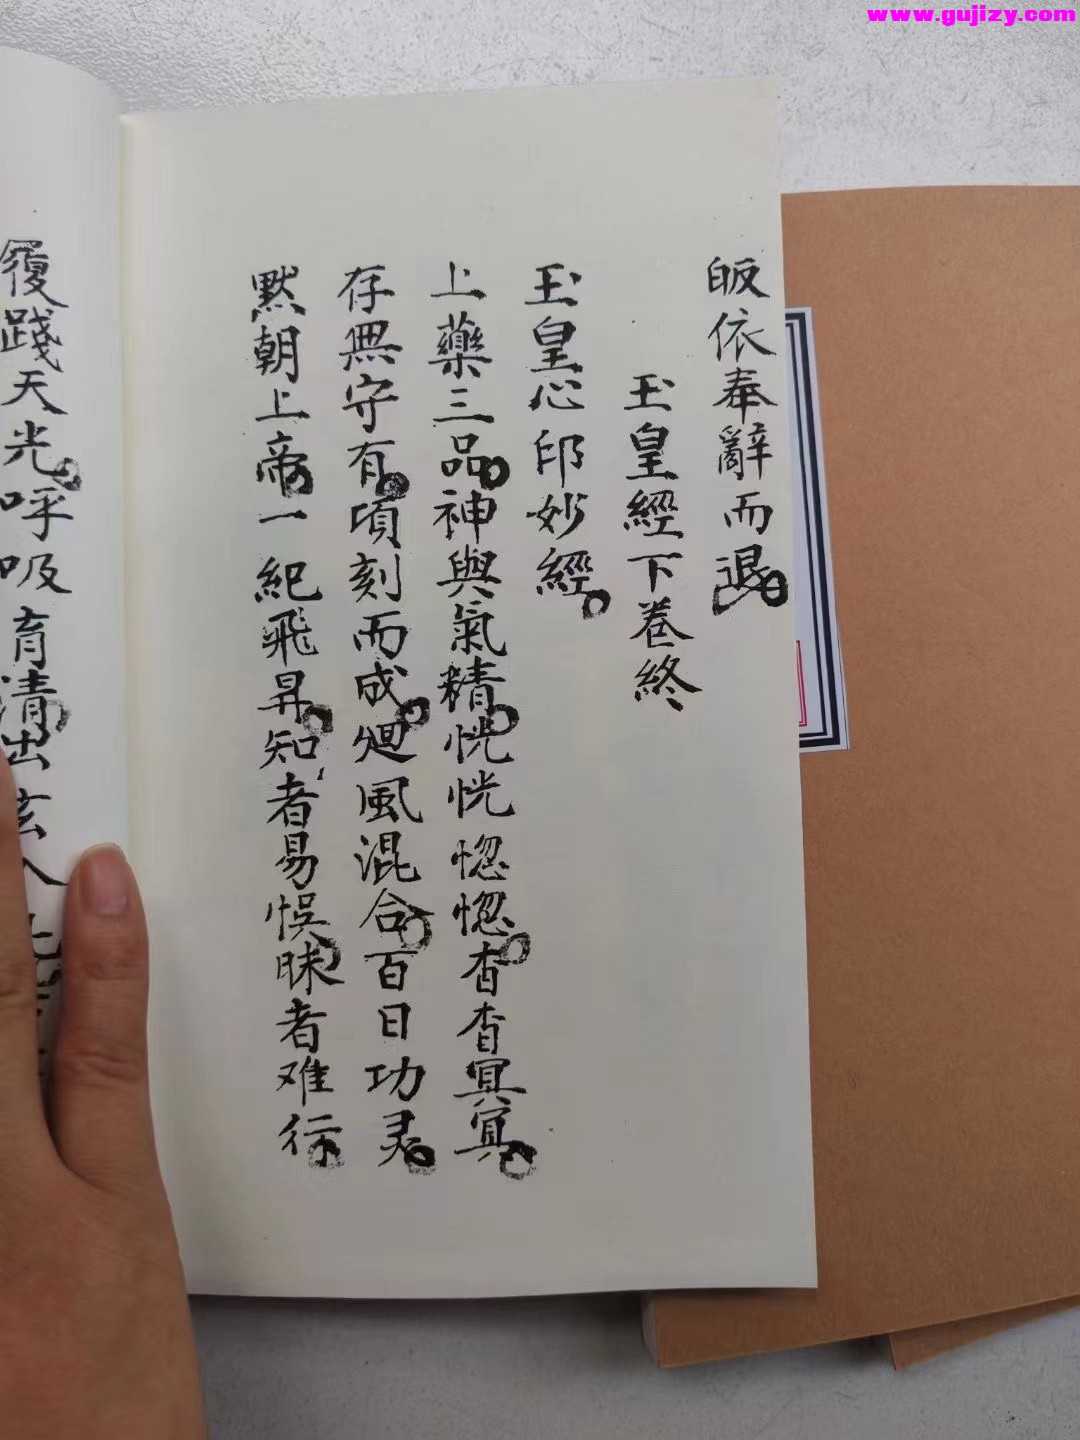 www.gujizy.com
皈依奉辭而退
玉皇經下卷終
玉皇心印妙經
上藥三品神與氣精恍恍惚惚杳杳冥冥
存無守有項刻而成廻風混合百日功灵
默朝上帝一紀飛昇知者易悞昧者难行
履踐天光呼吸育清出玄入